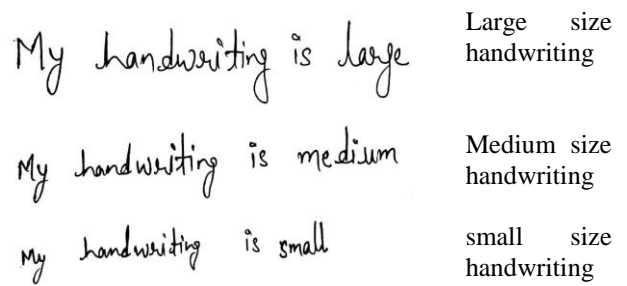 My handwriting is large
Large size
handwriting
My handwriting is medium
Medium size
handwriting
My handwriting is small
small size
handwriting